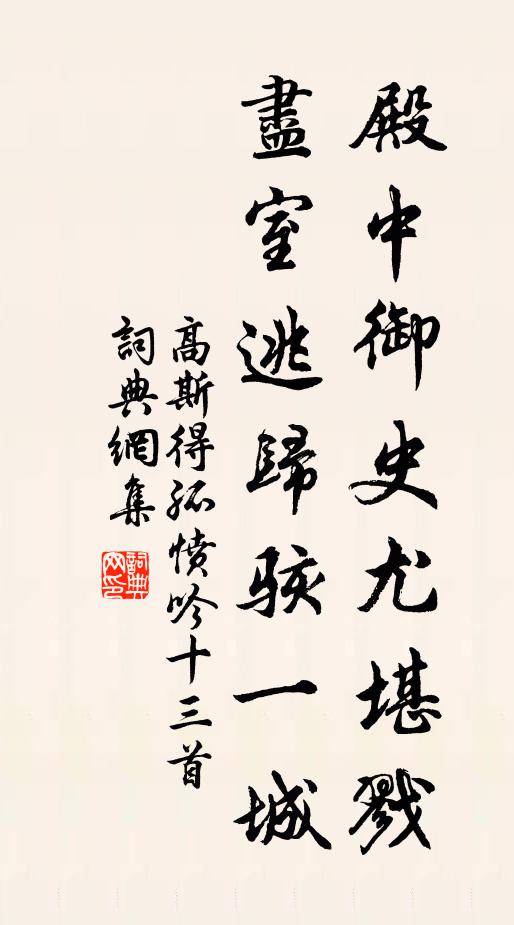 殿中御史尤堪戮
盡室逃歸駭一城
高斯得孤憤吟十三首
詞典網集
詞典
网印